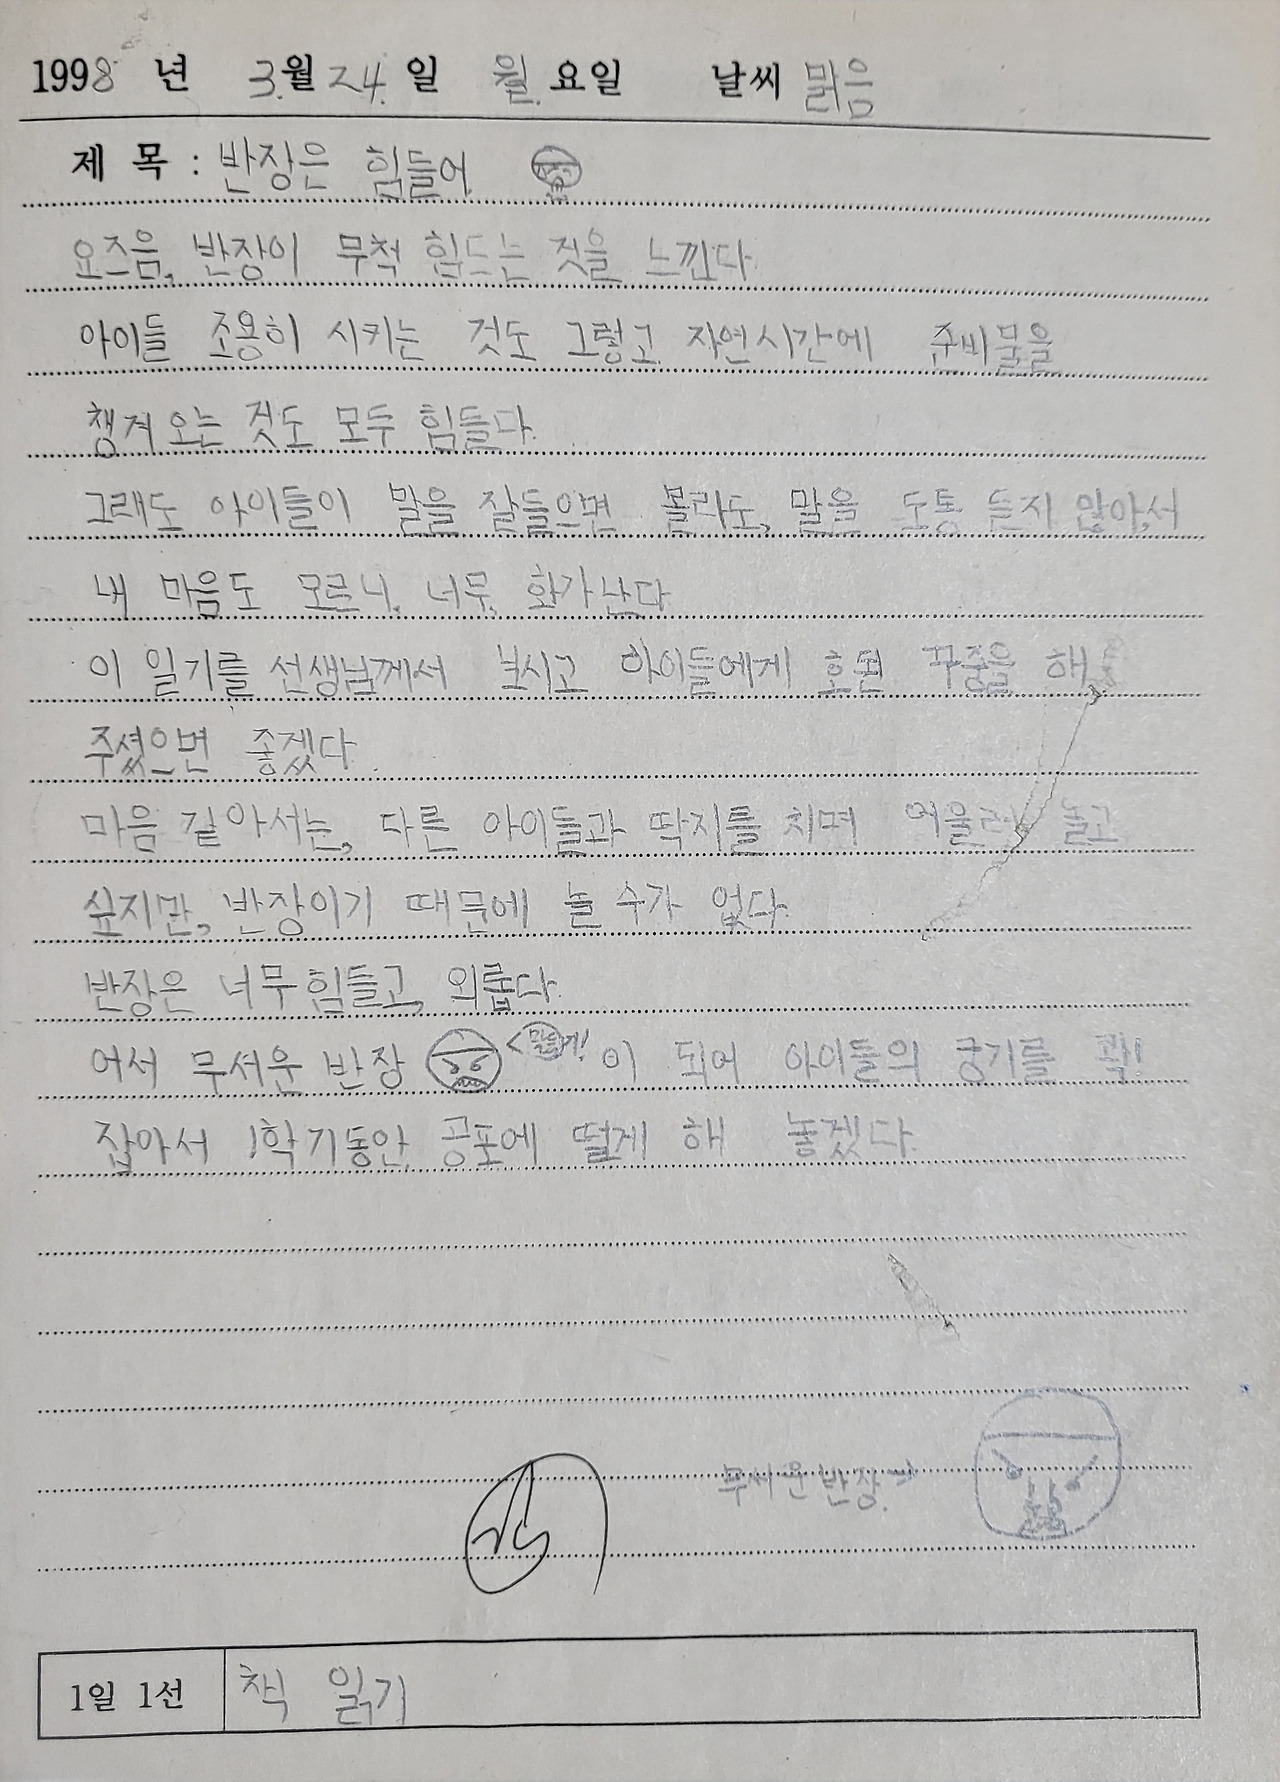 1998 년 3.월 24. 일 월. 요일 날씨 맑음
제 목 : 반장은 힘들어
요즈음, 반장이 무척 힘드는 것을 느낀다.
아이들 조용히 시키는 것도 그렇고. 자연시간에 준비물을
챙겨 오는 것도 모두 힘들다.
그래도 아이들이 말을 잘들으면 몰라도, 말을 도통 듣지 않아서
내 마음도 모르니. 너무. 화가 난다.
이 일기를 선생님께서 보시고 아이들에게 호된 꾸중을 해
주셨으면 좋겠다.
마음 같아서는, 다른 아이들과 딱지를 치며 어울려 놀고
싶지만, 반장이기 때문에 놀 수가 없다.
반장은 너무 힘들고, 외롭다.
어서 무서운 반장 이 되어 아이들의 군기를 꽉!
잡아서 1학기동안 공포에 떨게 해 놓겠다.
무서운 반장. →
1일 1선 책 읽기